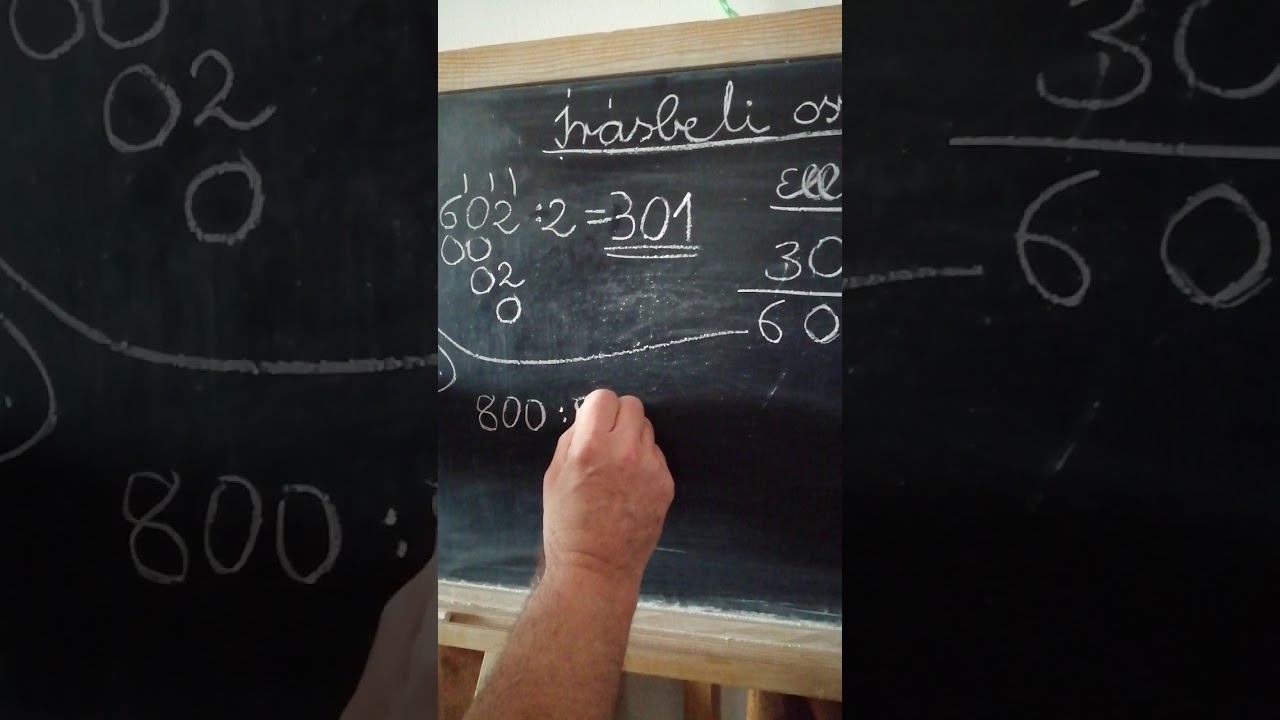 Írásbeli os
1 1 1
602 : 2 = 301
00
02
0
Ell
30
60
800 :